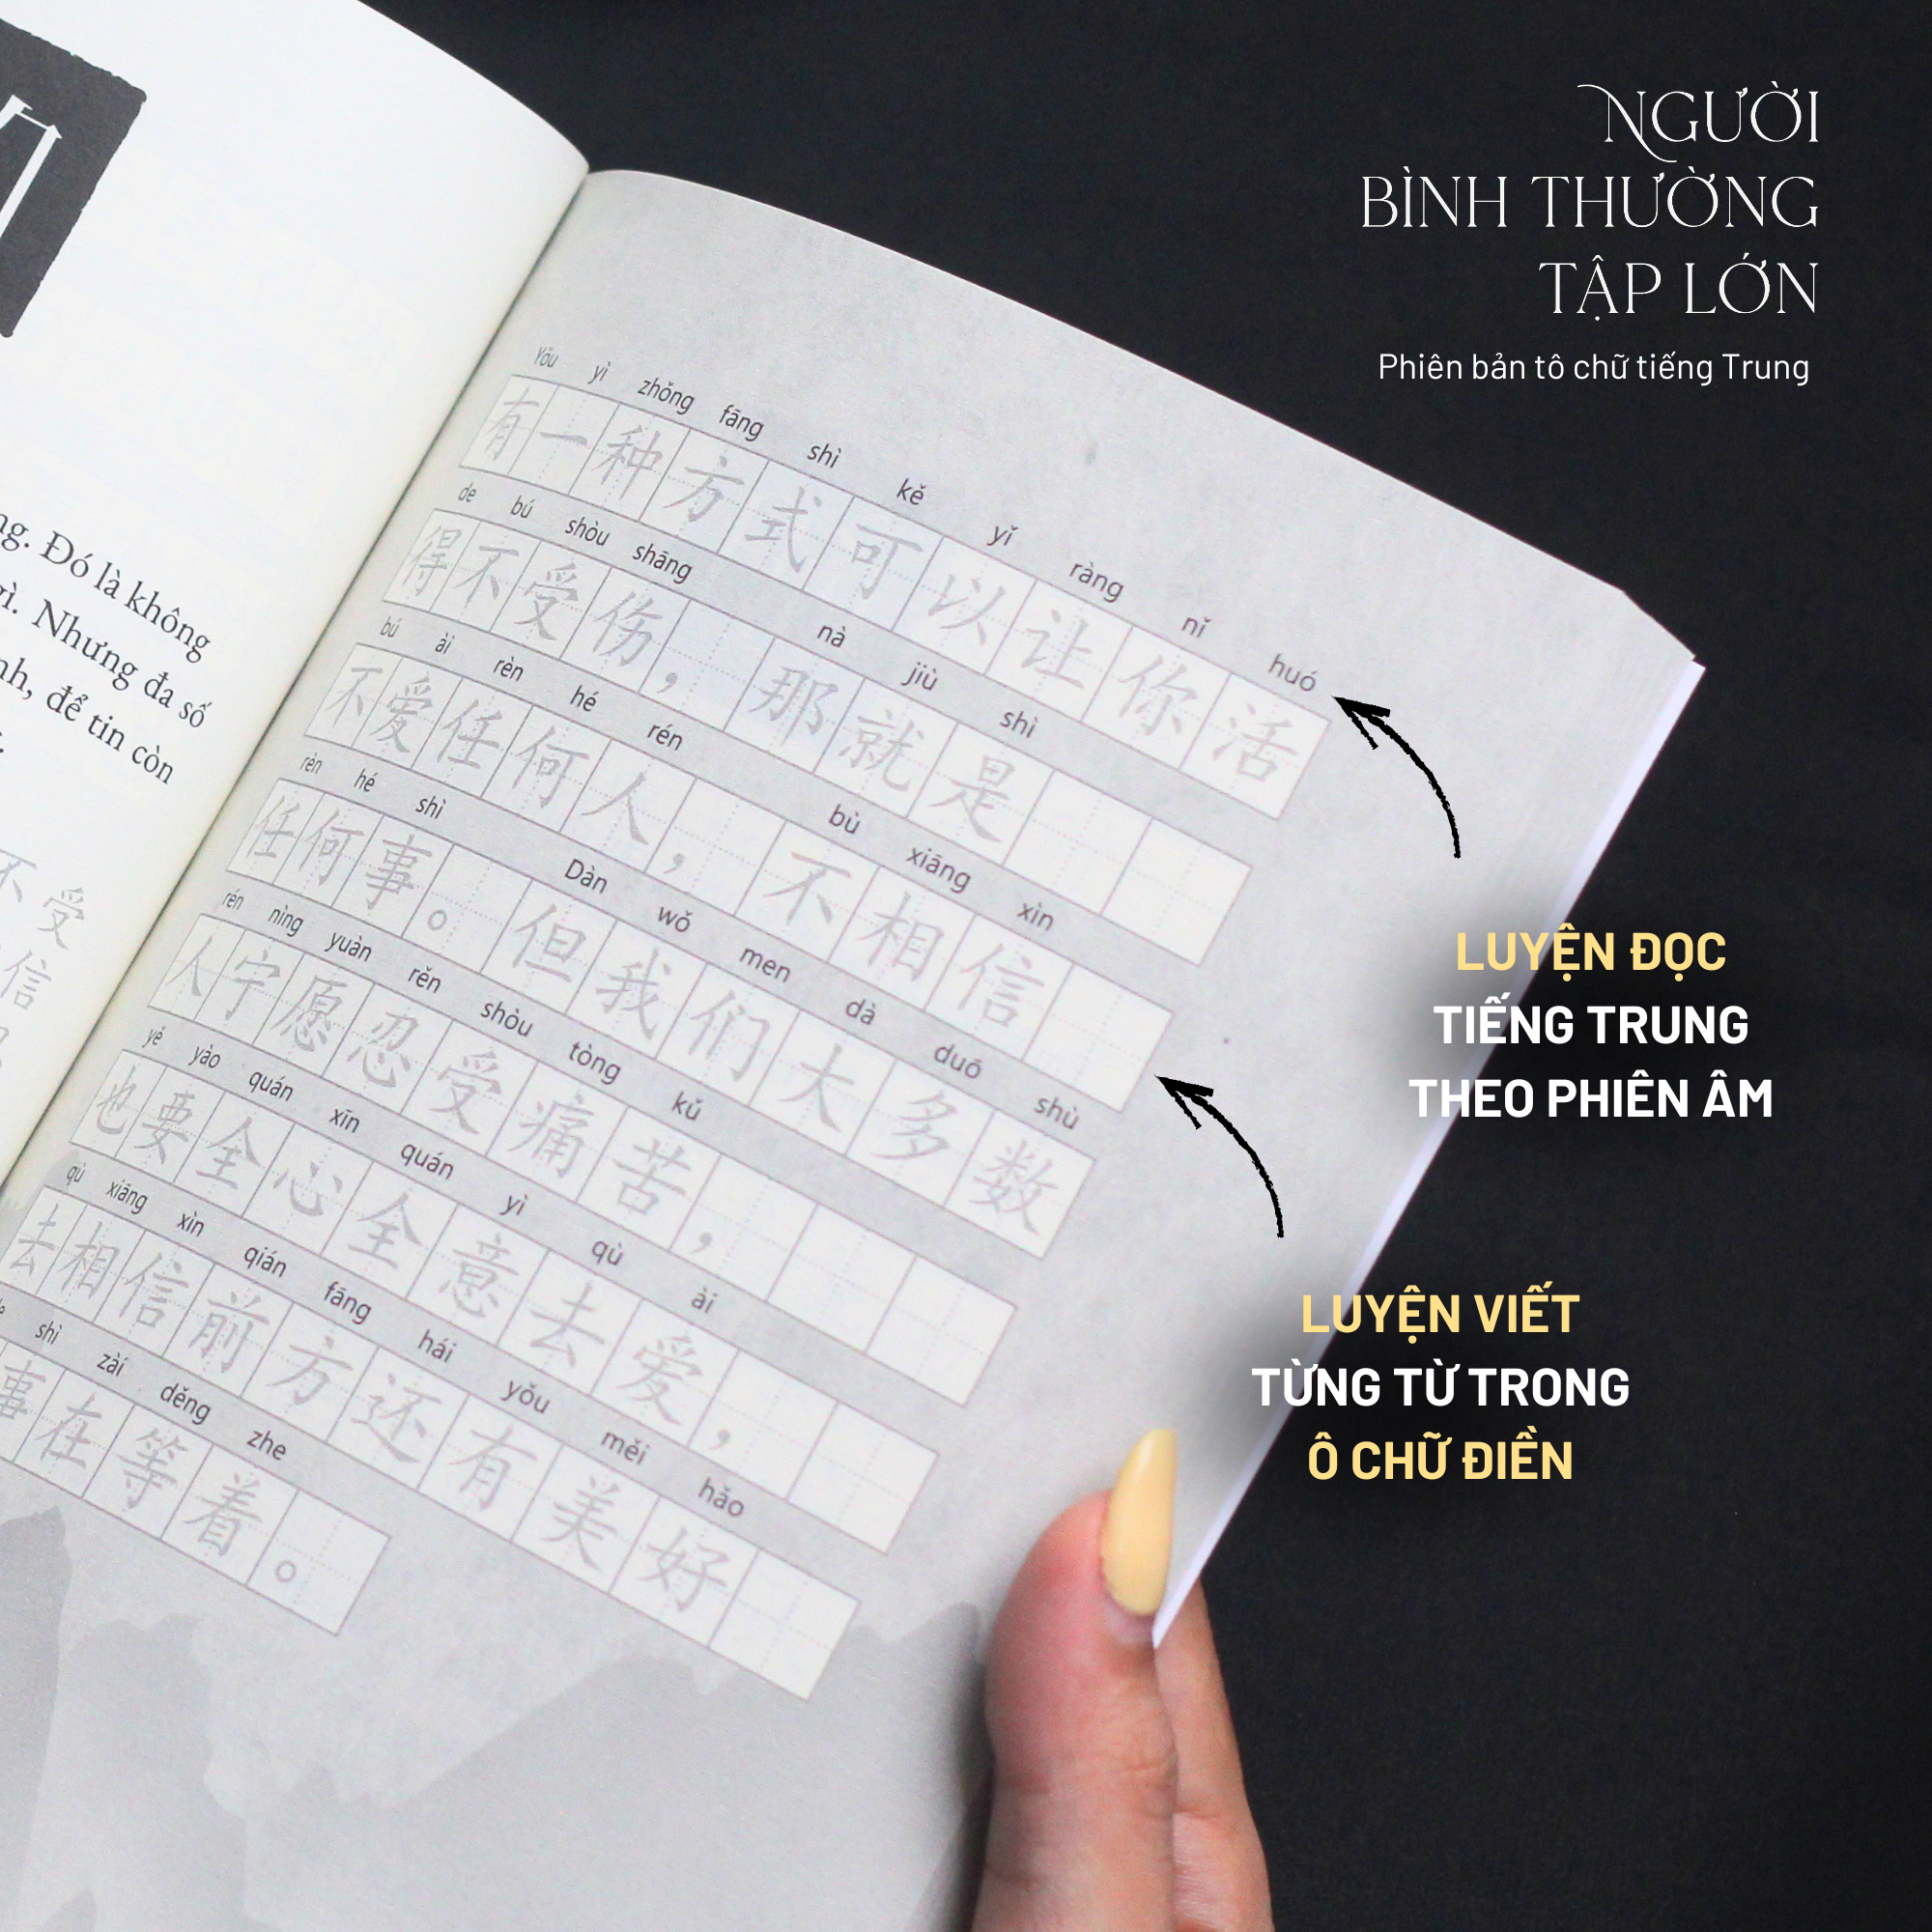 NGƯỜI
BÌNH THƯỜNG
TẬP LỚN
Phiên bản tô chữ tiếng Trung
ng. Đó là không
gì. Nhưng đa số
nh, để tin còn
不受
信
Yǒu yì zhǒng fāng shì kě yǐ ràng nǐ huó
有一种方式可以让你活
de bú shòu shāng nà jiù shì
得不受伤，那就是
bú ài rèn hé rén bù xiāng xìn
不爱任何人，不相信
rèn hé shì Dàn wǒ men dà duō shù
任何事。但我们大多数
rén nìng yuàn rěn shòu tòng kǔ
人宁愿忍受痛苦，
yě yào quán xīn quán yì qù ài
也要全心全意去爱，
qù xiāng xìn qián fāng hái yǒu měi hǎo
去相信前方还有美好
de shì zài děng zhe
事在等着。
LUYỆN ĐỌC
TIẾNG TRUNG
THEO PHIÊN ÂM
LUYỆN VIẾT
TỪNG TỪ TRONG
Ô CHỮ ĐIỀN